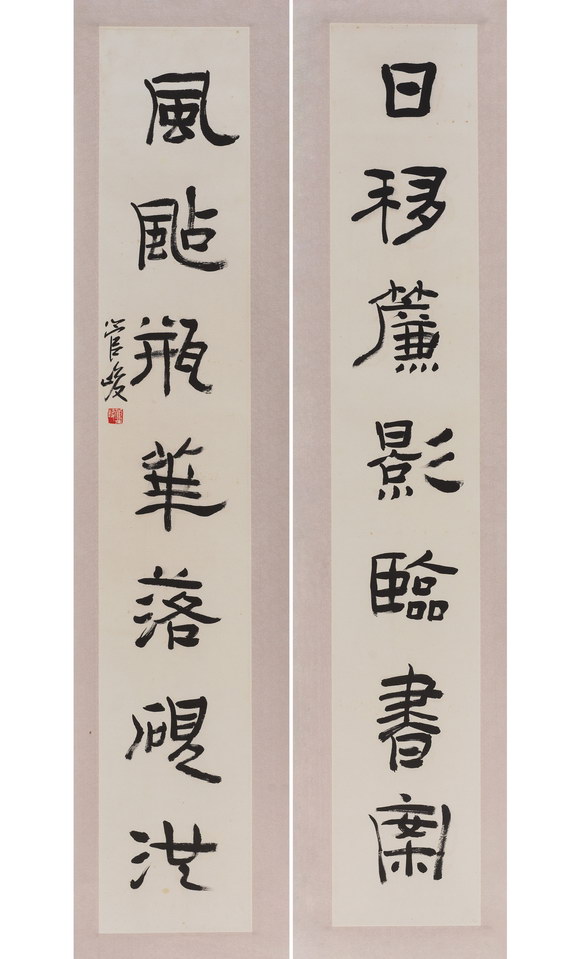 日移簾影臨書案
風颭瓶華落硯池
管峻